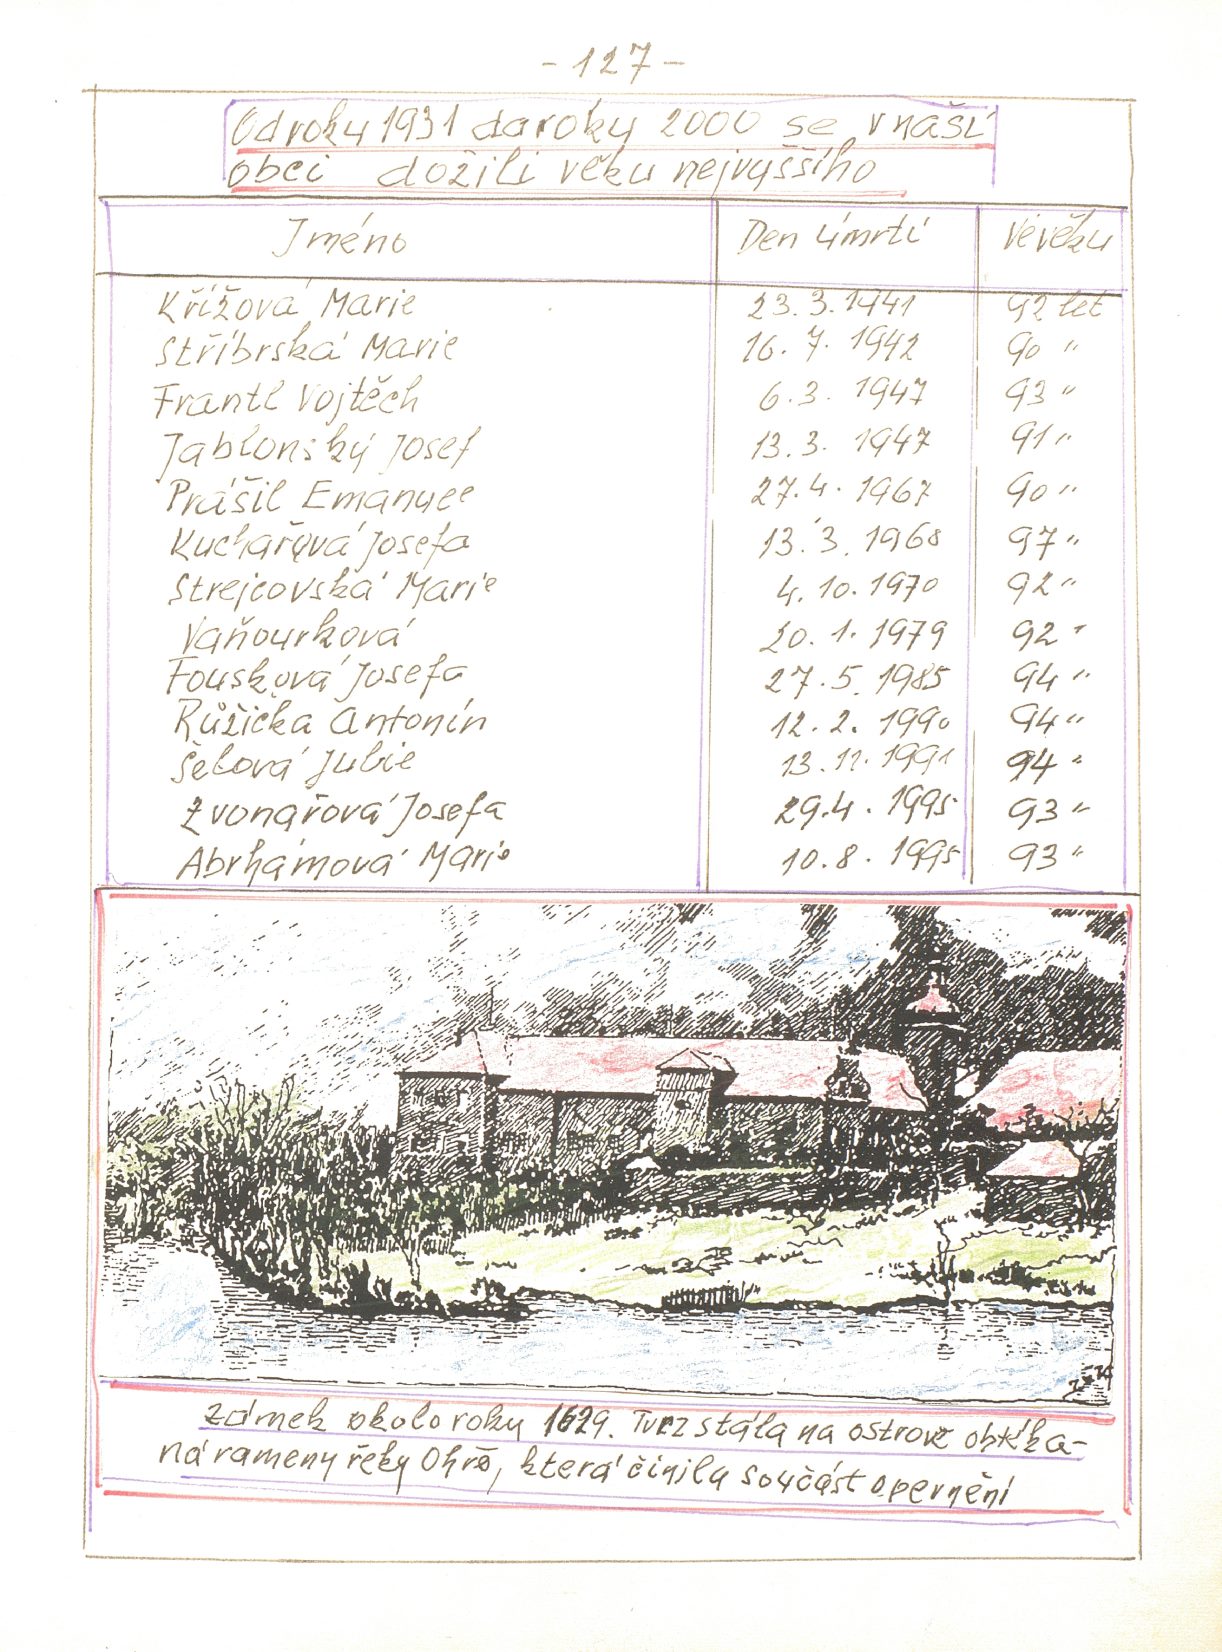 - 127 -
Od roku 1931 do roku 2000 se v naší
obci dožili věku nejvyššího
Jméno Den úmrtí Ve věku
Křížová Marie 23. 3. 1941 92 let
Stříbrská Marie 16. 7. 1942 90 "
Frantl Vojtěch 6. 3. 1947 93 "
Jablonský Josef 13. 3. 1947 91 "
Prášil Emanuel 27. 4. 1967 90 "
Kuchařová Josefa 13. 3. 1968 97 "
Strejcovská Marie 4. 10. 1970 92 "
Vaňourková 20. 1. 1979 92 "
Fousková Josefa 27. 5. 1985 94 "
Růžička Antonín 12. 2. 1990 94 "
Šelová Julie 13. 11. 1991 94 "
Zvonařová Josefa 29. 4. 1995 93 "
Abrhámová Marie 10. 8. 1995 93 "
Zámek okolo roku 1629. Tvrz stála na ostrově obtéka-
ná rameny řeky Ohře, která činila součást opevnění